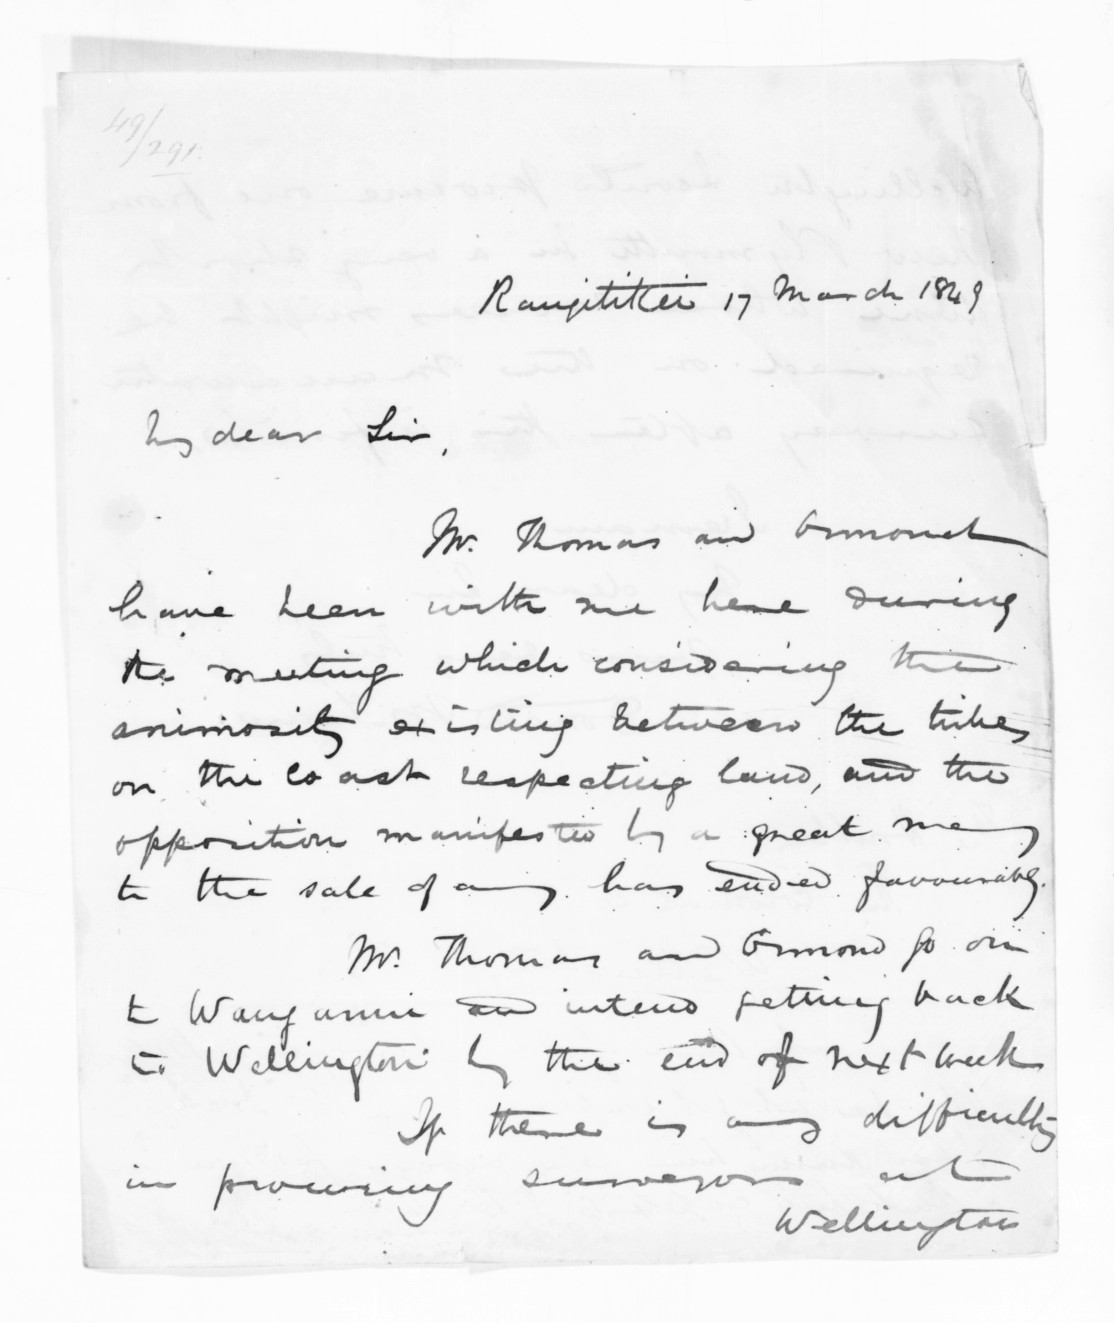 49/291.
Rangitikei 17 March 1849
My dear Sir,
Mr. Thomas and Ormond
have been with me here during
the meeting which considering the
animosity existing between the tribes
on the Coast respecting land, and the
opposition manifested by a great many
to the sale of any has ended favourably.
Mr. Thomas and Ormond go on
to Wanganui and intend getting back
to Wellington by the end of next week
If there is any difficulty
in procuring surveyors at
Wellington